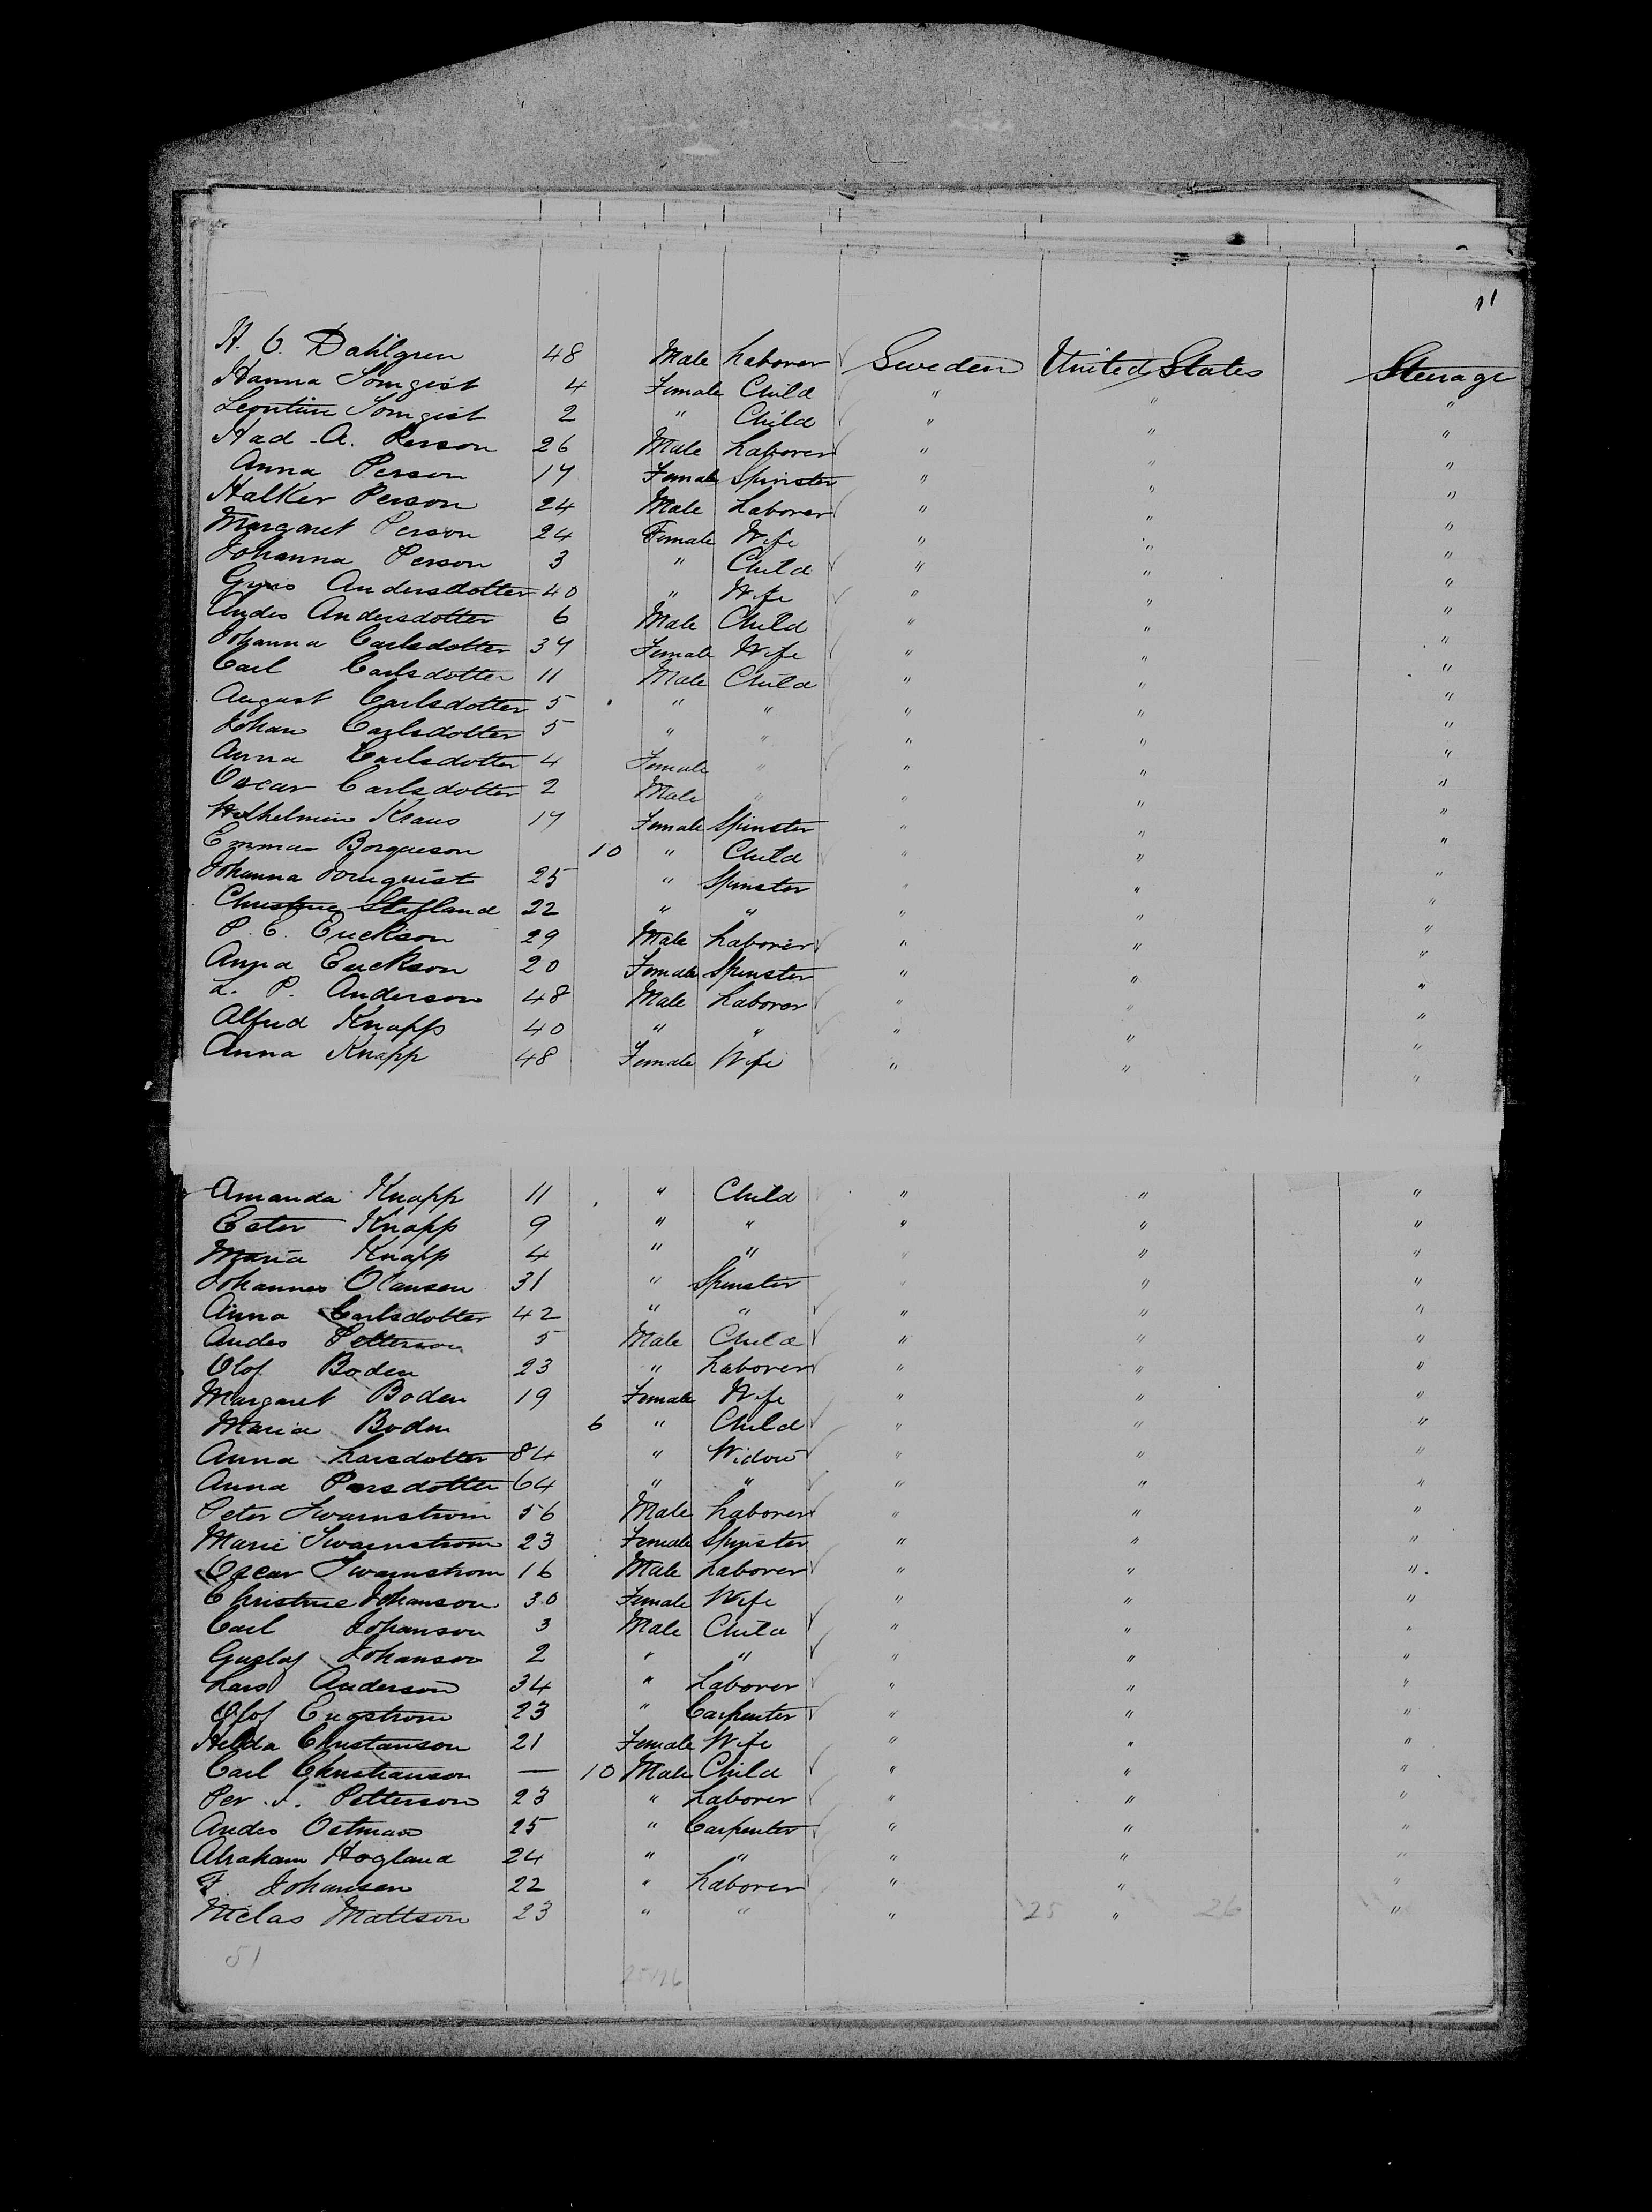 11
H. O. Dahlgren 48 Male Laborer Sweden United States Steerage
Hanna Tomgist 4 Female Child " " "
Leontine Tomgist 2 " Child " " "
Had A. Person 26 Male Laborer " " "
Anna Person 17 Female Spinster " " "
Halker Person 24 Male Laborer " " "
Margaret Person 24 Female Wife " " "
Johanna Person 3 " Child " " "
Andersdotter 40 " Wife " " "
Andes Andersdotter 6 Male Child " " "
Johanna Carlsdotter 37 Female Wife " " "
Carl Carlsdotter 11 Male Child " " "
August Carlsdotter 5 " " " " "
Johan Carlsdotter 5 " " " " "
Anna Carlsdotter 4 Female " " " "
Oscar Carlsdotter 2 Male " " " "
Wilhelmine Kraus 17 Female Spinster " " "
Emma Borgueson 10 " Child " " "
Johanna 25 " Spinster " " "
Christine Stafland 22 " " " " "
P. E. Erickson 29 Male Laborer " " "
Anna Erickson 20 Female Spinster " " "
L. P. Anderson 48 Male Laborer " " "
Alfred Knapp 40 " " " " "
Anna Knapp 48 Female Wife " " "
Amanda Knapp 11 " Child " " "
Ester Knapp 9 " " " " "
Maria Knapp 4 " " " " "
Johannes Olausen 31 " Spinster " " "
Anna Carlsdotter 42 " " " " "
Andes Petterson 5 Male Child " " "
Olof Boden 23 " Laborer " " "
Margaret Boden 19 Female Wife " " "
Maria Boden 6 " Child " " "
Anna Larsdotter 84 " Widow " " "
Anna Persdotter 64 " " " " "
Peter Swarnstrom 56 Male Laborer " " "
Marie Swarnstrom 23 Female Spinster " " "
Oscar Swarnstrom 16 Male Laborer " " "
Christine Johanson 30 Female Wife " " "
Carl Johanson 3 Male Child " " "
Gustaf Johanson 2 " " " " "
Lars Anderson 34 " Laborer " " "
Olof Engstrom 23 " Carpenter " " "
Hilda Christanson 21 Female Wife " " "
Carl Christianson — 10 Male Child " " "
Per J. Petterson 23 " Laborer " " "
Andes Ostman 25 " Carpenter " " "
Abraham Hogland 24 " " " " "
F. Johansen 22 " Laborer " " "
Niclas Mattson 23 " " " 25 " 26 "
51 25/26